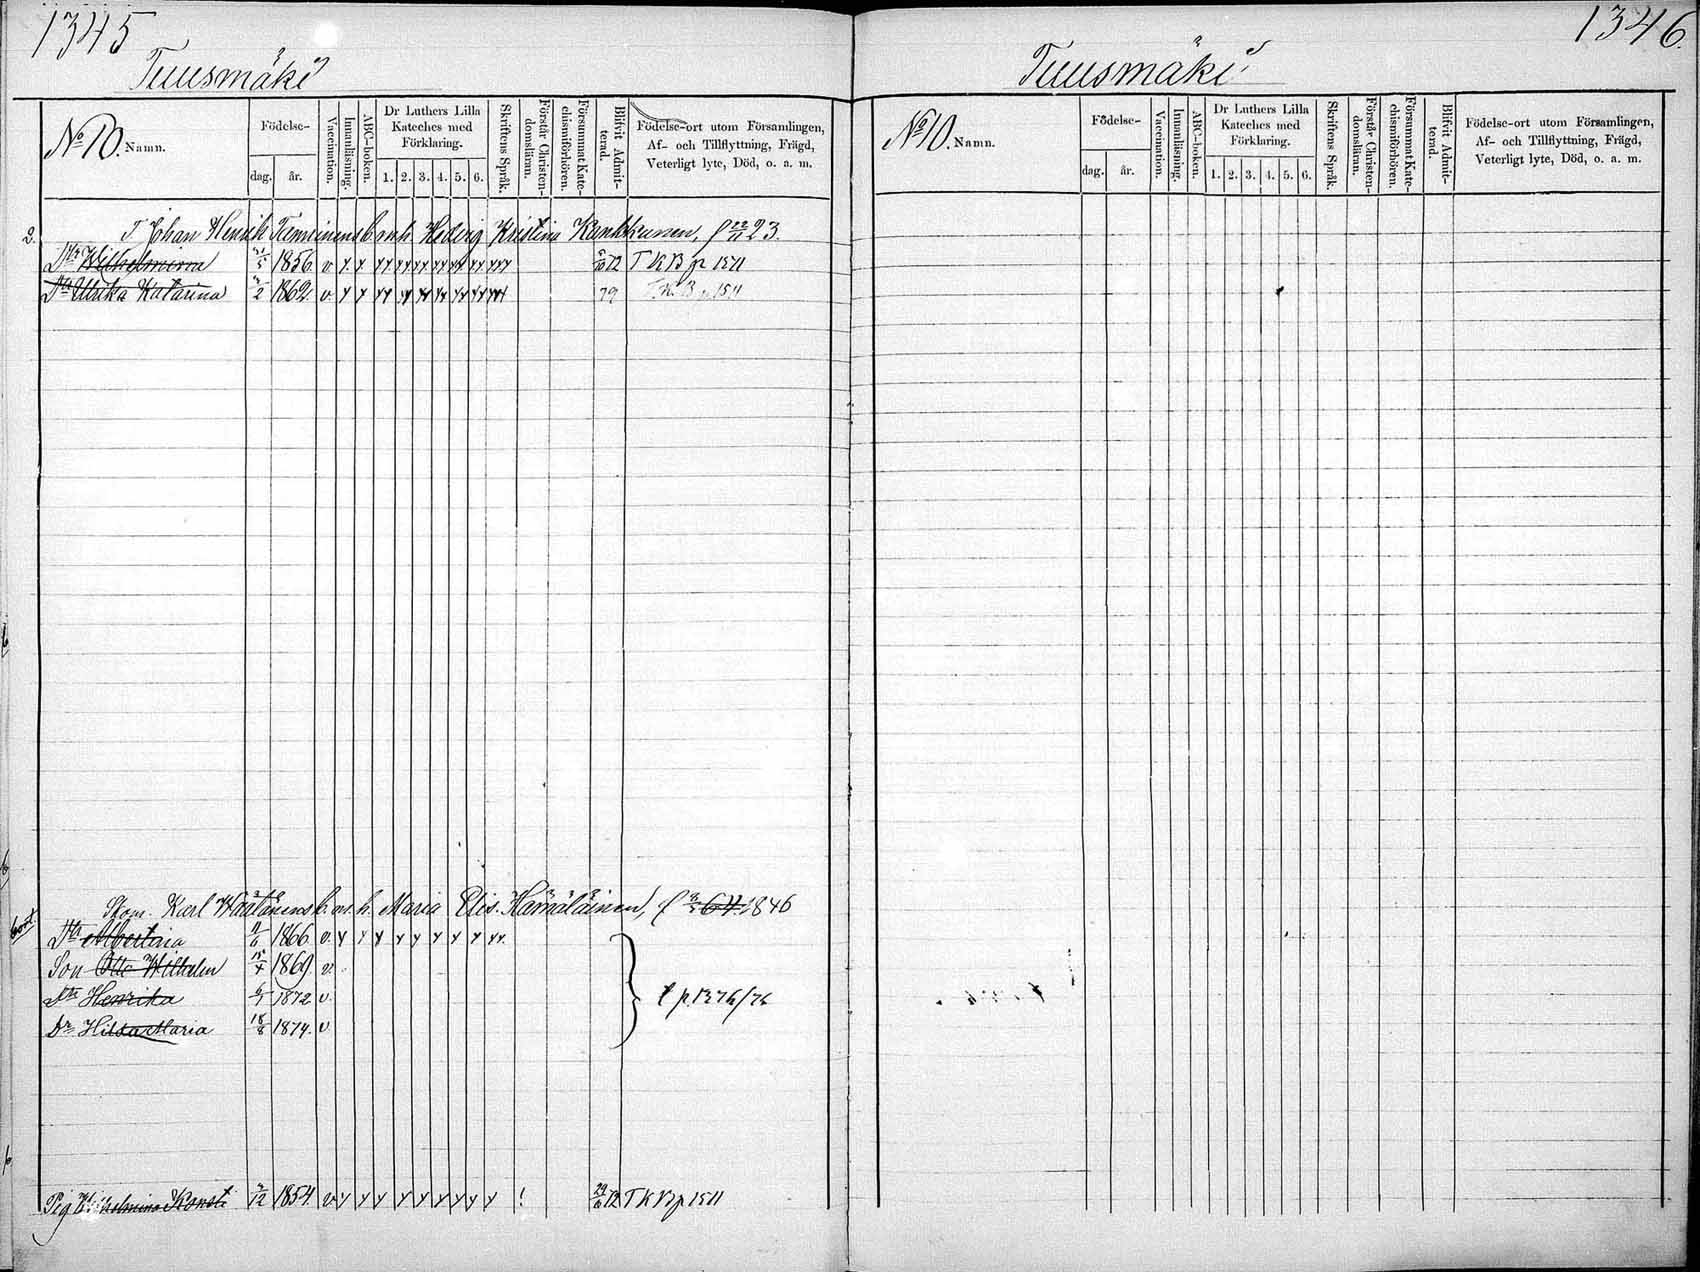 1345
Tuusmäki
No 10. Namn.
Födelse-
dag.
år.
Vaccination.
Innanläsning.
ABC-boken.
Dr Luthers Lilla
Kateches med
Förklaring.
1. 2. 3. 4. 5. 6.
Skriftens Språk.
Förstår Christen-
domsläran.
Försummat Kate-
chismiförhören.
Blifvit Admit-
terad.
Födelse-ort utom Församlingen,
Af- och Tillflyttning, Frägd,
Veterligt lyte, Död, o. a. m.
2. T. Johan Henrik b. m. h. Hedvig Kristina Kankkunen, f 22/11 23.
Dtr Wilhelmina 1856. v. 12 T K B p 1511
Dtr Ulrika Katarina 2/2 1862. v. 79 T. K. B p. 1511
Karl b. m. h. Maria Elis. Hämäläinen, f 64. 1846
Dtr Albertina 11/6 1866. v.
Son Otto Wilhelm 15/4 1869. v.
Dtr Henrika 6/1 1872 v. t p. 1376/76
Dr Hilda Maria 18/8 1874. v
Pig Wilhelmina 1854. v ! 12 T K B p 1511
1346.
Tuusmäki
No 10. Namn.
Födelse-
dag.
år.
Vaccination.
Innanläsning.
ABC-boken.
Dr Luthers Lilla
Kateches med
Förklaring.
1. 2. 3. 4. 5. 6.
Skriftens Språk.
Förstår Christen-
domsläran.
Försummat Kate-
chismiförhören.
Blifvit Admit-
terad.
Födelse-ort utom Församlingen,
Af- och Tillflyttning, Frägd,
Veterligt lyte, Död, o. a. m.